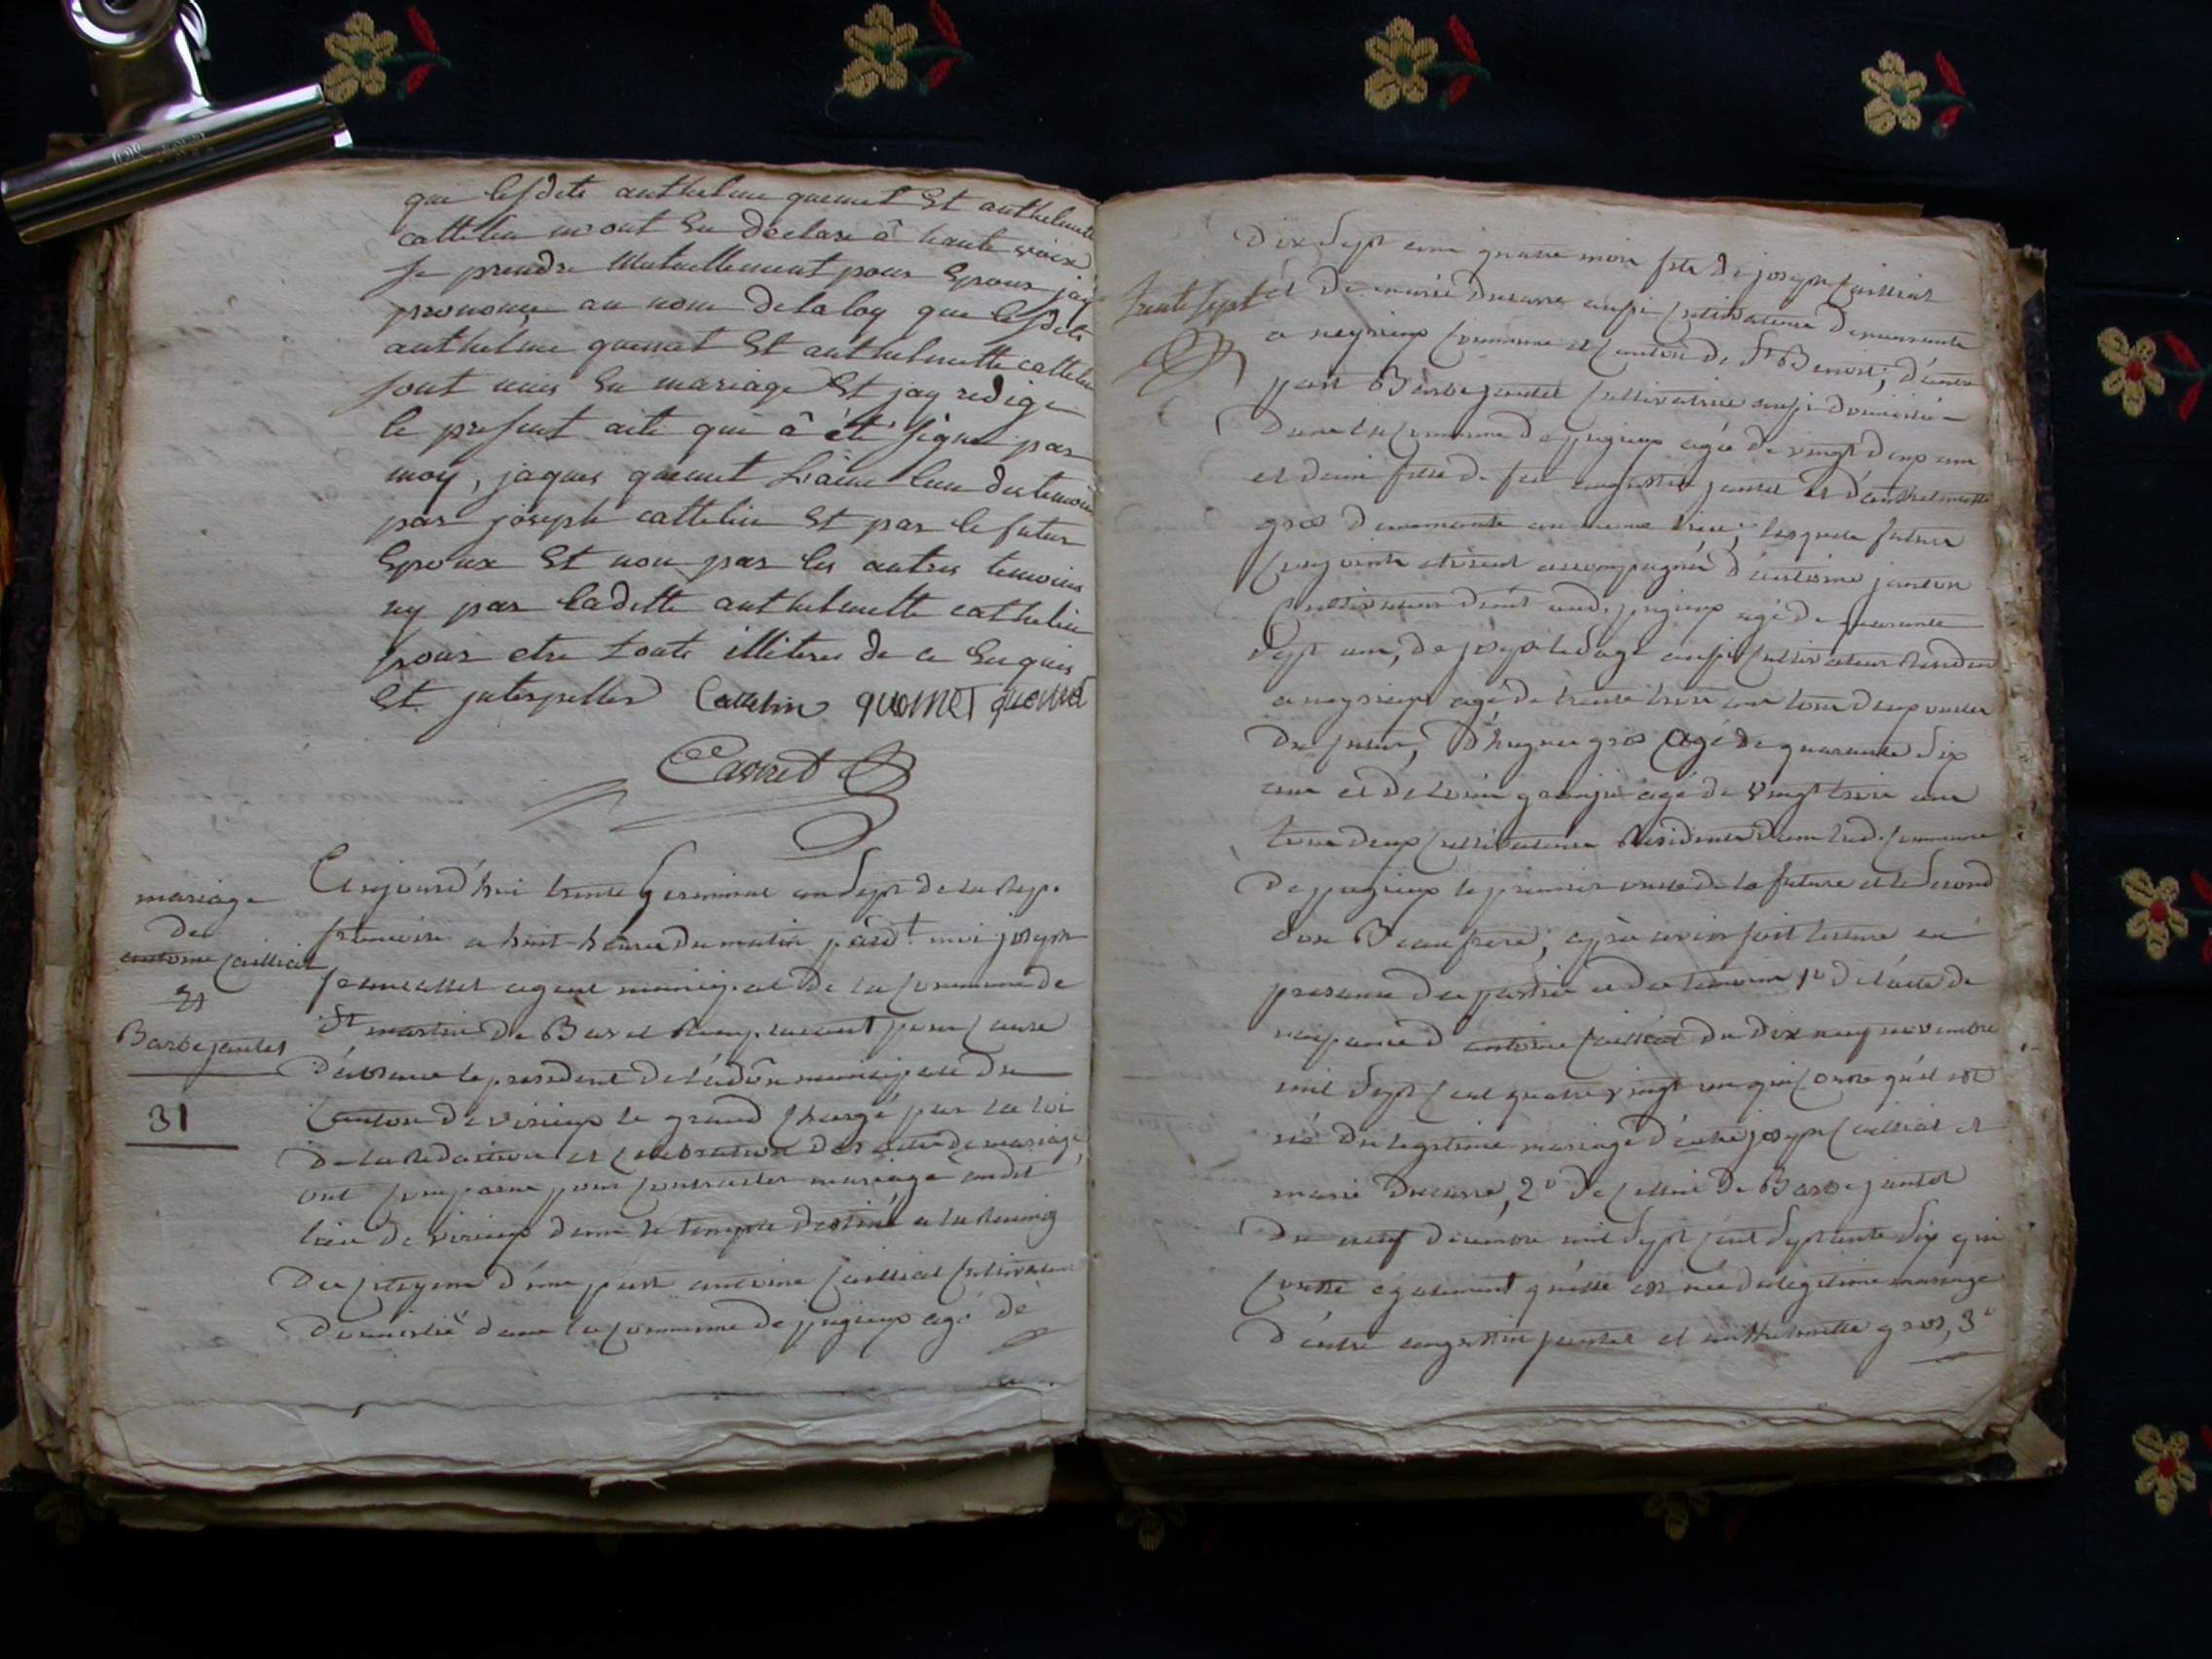 que lesdits anthelme quemet Et anthelmette
cattelin m'ont Eu declaré â haute voix
se prendre Mutuellement pour Epoux jay
prononcé au nom de la loy que lesdits
anthelme quemet Et anthelmette cattelin
sont unis En mariage Et jay redigé
le present acte qui â êté signé par
moy, jaques quemet L'ainé l'un des temoins
par joseph cattelin Et par le futur
Epoux Et non par les autres temoins
ny par ladette anthelmette cathelin
pour etre touts illiteres de ce Enquis
Et jnterpellés Cattelin quemet quemet
Carrret
mariage
de
antoine Cailliat
Et
Barbe jantet
31
Aujourd'hui trente Germinal an Sept de la Rep.
francoise a huit heures du matin pardt. moi joseph
agent municipal de la Commune de
St martin de Bavel Remplacant pour Cause
d'absence le president de l'adôn municipale du
Canton de virieux le grand Chargé par la loi
de la Redaction et Celebration des actes de mariage,
ont Comparu pour Contracter mariage audit
lieu de virieux dans le temple destiné a la Reunion
des Citoyens d'une part antoine Cailliat Cultivateur
domicilié dans la Commune de pugieux agé de
trente sept
Dix Sept ans quatre mois fils de joseph Cailliat
et de marie ducarre aussi Cultivateurs demeurants
a neyrieux Commune et Canton de St Benoit; d'autre
part Barbe jantet Cultivatrice aussi domicilié
dans la Commune de pugieux agée de vingt deux ans
et demi fille de feu augustin jantet et d'anthelmette
gros demeurante au meme lieu; lesquels futurs
Conjoints etoient accompagnés d'antoine janton
Cultivateur dud. pugieux agé de quarante
Sept ans, de joseph aussi Cultivateur Resident
a neyrieux agé de trente trois ans tous deux oncles
du futur, d'hugues gros agé de quarante Six
ans et de grangé agé de vingt trois ans
tous deux Cultivateurs Residents dans lad. Commune
de pugieux le premier oncle de la future et le Second
son Beaufrere; après avoir fait lecture en
presence des parties et des temoins 1o de l'acte de
naissance d'antoine Cailliat du dix neuf novembre
mil Sept Cent quatre vingt un qui Constate qu'il est
né du legitime mariage d'entre joseph Cailliat et
marie Ducarre, 2o de Cellui de Barbe jantet
du neuf decembre mil Sept Cent Septante Six qui
Constate egalement qu'elle est née du legitime mariage
d'entre augustin jantet et anthelmette gros, 3o